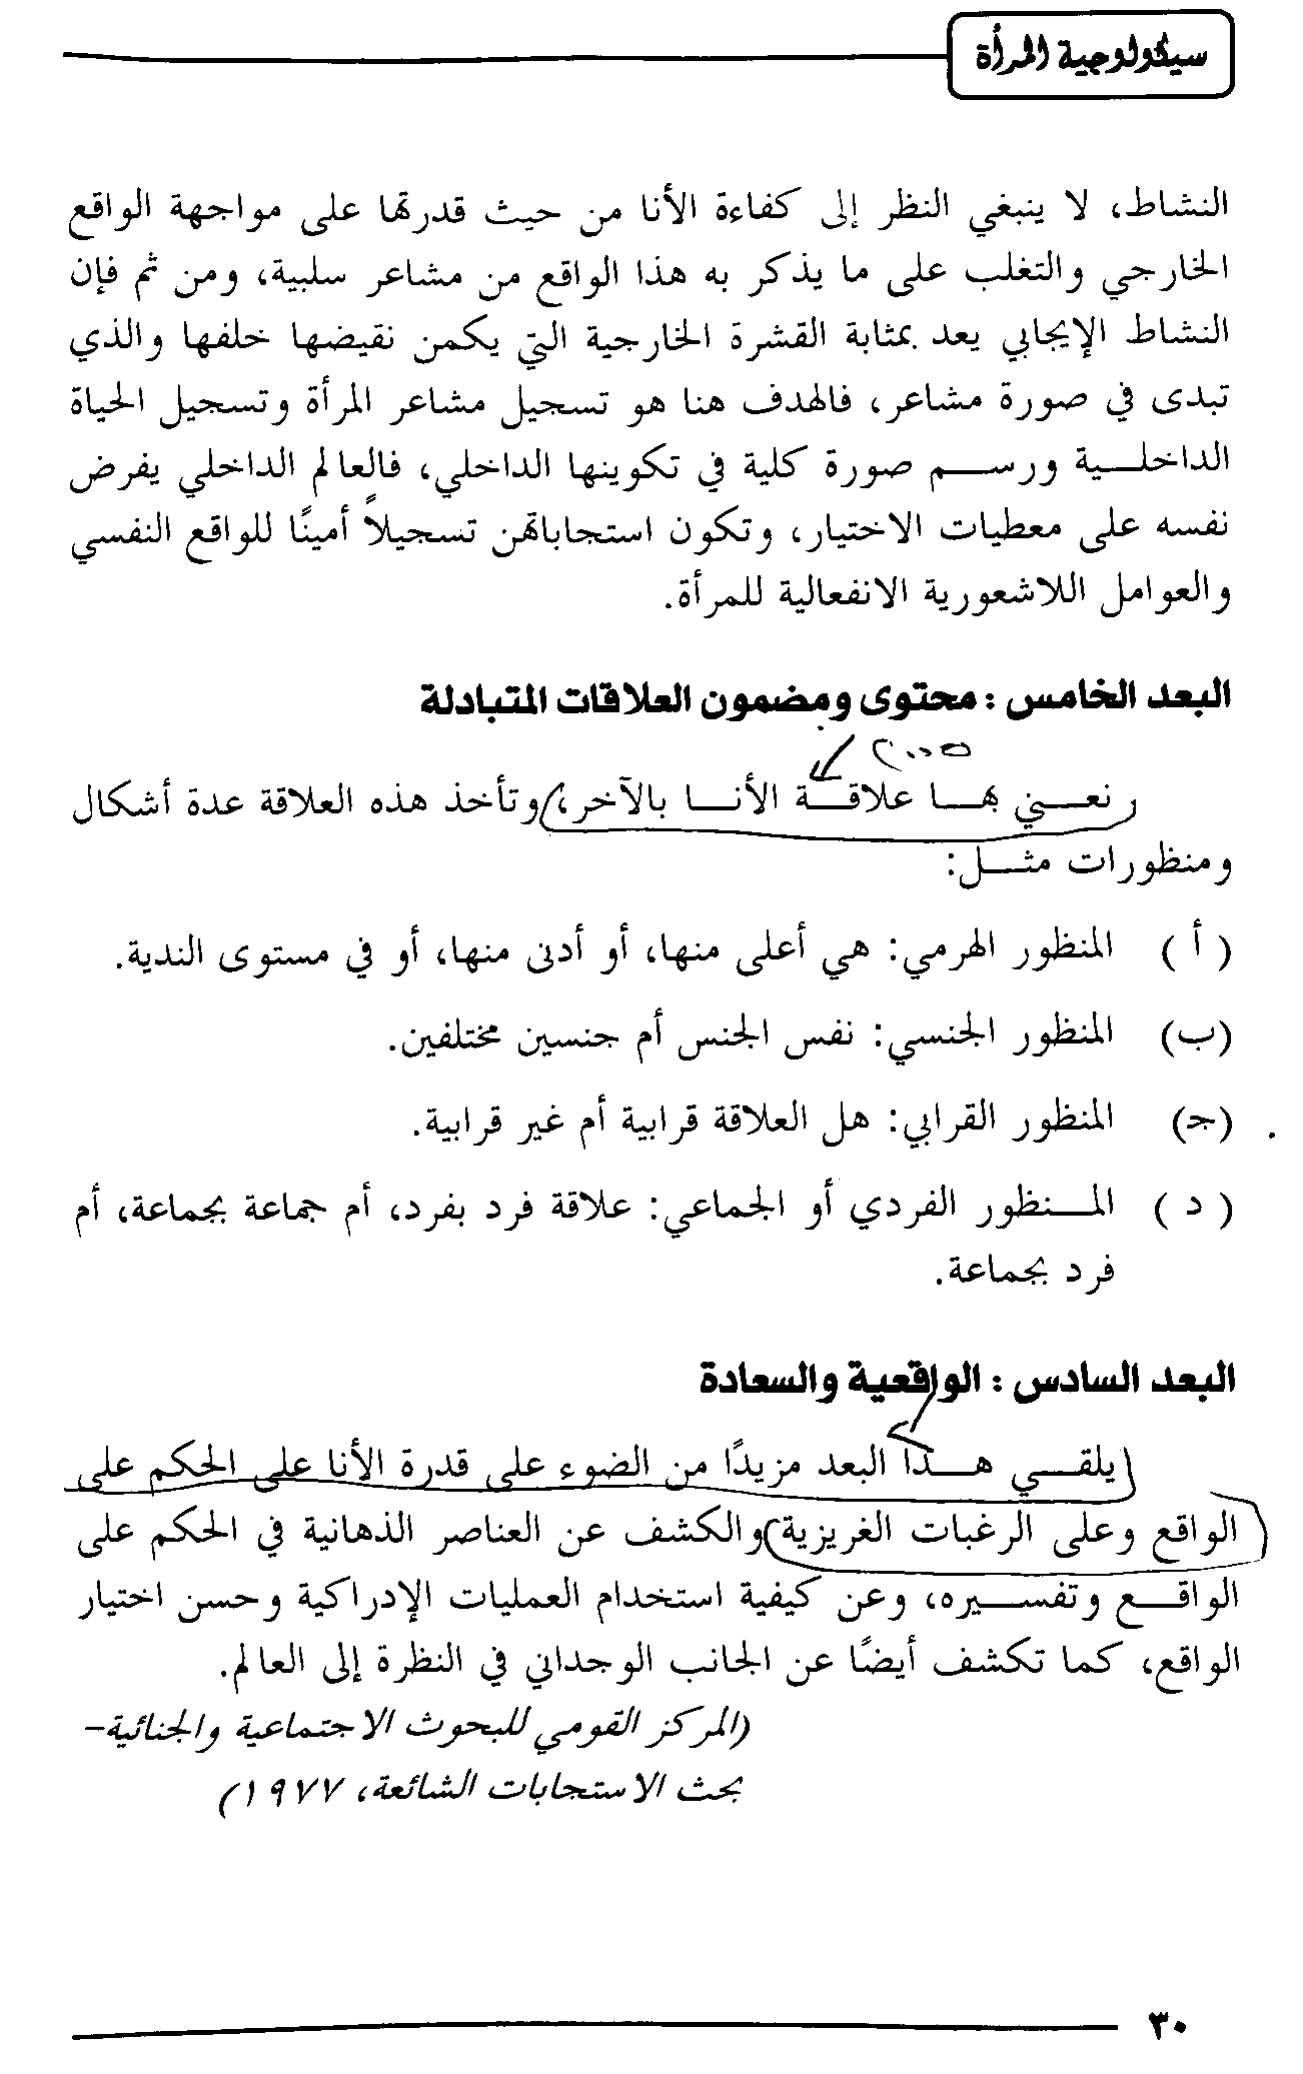 سيكولوجية المرأة
النشاط، لا ينبغي النظر إلى كفاءة الأنا من حيث قدرتها على مواجهة الواقع
الخارجي والتغلب على ما يذكر به هذا الواقع من مشاعر سلبية، ومن ثم فإن
النشاط الإيجابي يعد بمثابة القشرة الخارجية التي يكمن نقيضها خلفها والذي
تبدى في صورة مشاعر، فالهدف هنا هو تسجيل مشاعر المرأة وتسجيل الحياة
الداخلـــية ورســـم صورة كلية في تكوينها الداخلي، فالعالم الداخلي يفرض
نفسه على معطيات الاختيار، وتكون استجاباتهن تسجيلاً أمينًا للواقع النفسي
والعوامل اللاشعورية الانفعالية للمرأة.
البعد الخامس : محتوى ومضمون العلاقات المتبادلة
نعـــني بهـــا علاقـــة الأنـــا بالآخر، وتأخذ هذه العلاقة عدة أشكال
ومنظورات مثـــل:
( أ ) المنظور الهرمي: هي أعلى منها، أو أدنى منها، أو في مستوى الندية.
(ب) المنظور الجنسي: نفس الجنس أم جنسين مختلفين.
(جـ) المنظور القرابي: هل العلاقة قرابية أم غير قرابية.
( د ) المـــنظور الفردي أو الجماعي: علاقة فرد بفرد، أم جماعة بجماعة، أم
فرد بجماعة.
البعد السادس : الواقعية والسعادة
يلقـــي هـــذا البعد مزيدًا من الضوء على قدرة الأنا على الحكم على
الواقع وعلى الرغبات الغريزية والكشف عن العناصر الذهانية في الحكم على
الواقـــع وتفســـيره، وعن كيفية استخدام العمليات الإدراكية وحسن اختيار
الواقع، كما تكشف أيضًا عن الجانب الوجداني في النظرة إلى العالم.
(المركز القومي للبحوث الاجتماعية والجنائية-
بحث الاستجابات الشائعة، ١٩٧٧)
٣٠